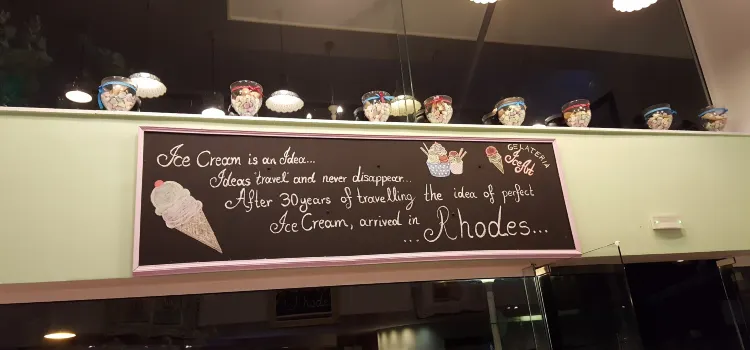 Ice Cream is an Idea...
Ideas 'travel' and never disappear...
After 30 years of travelling the idea of perfect
Ice Cream, arrived in
... Rhodes...
GELATERIA
Ice Art